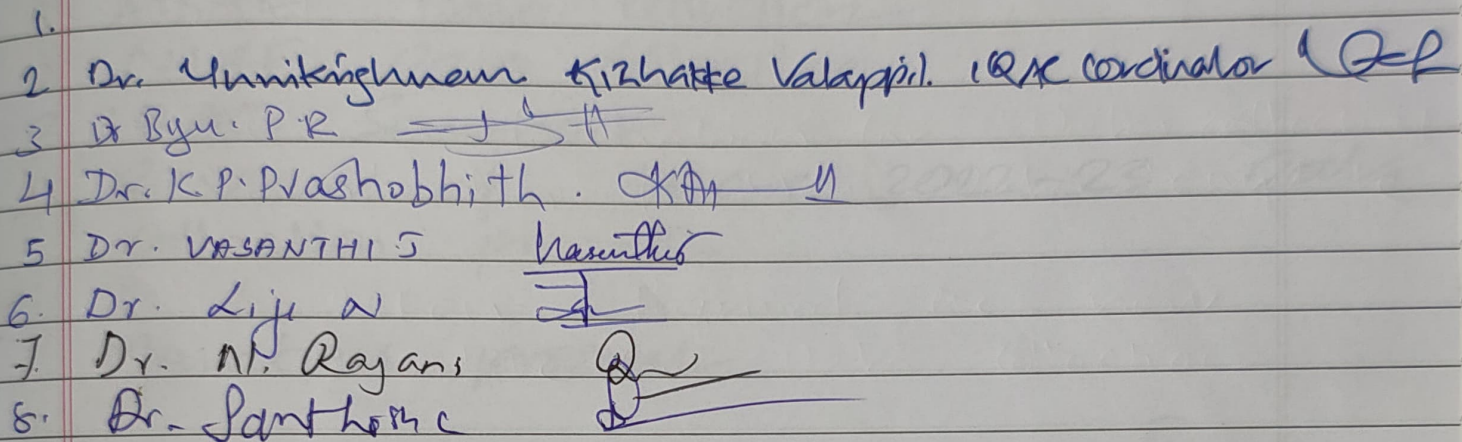 1.
2 Dr. Unnikrishnan Kizhakke Valappil. IQAC Cordinator
3 Dr Byu. P.R
4 Dr. K.P. Prashobhith.
5 Dr. VASANTHI S Vasanthi S
6. Dr. Liju N
7. Dr. N.P. Rajani
8. Dr. Santhosh C